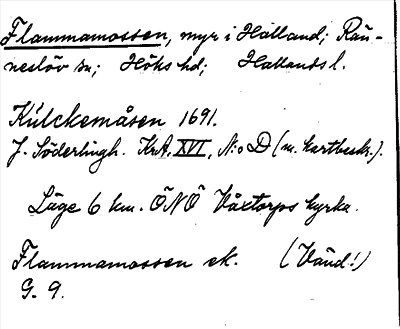 Flammamossen, myr i Halland; Rän-
neslöv sn; Höks hd; Hallands l.
Kulckemåsen 1691.
J. Söderlingh. KrA. XVI, N:o D (m. kartbeskr.).
Läge 6 km. ÖNÖ Våxtorps kyrka.
Flammamossen ek. (Vänd!)
G. 9.